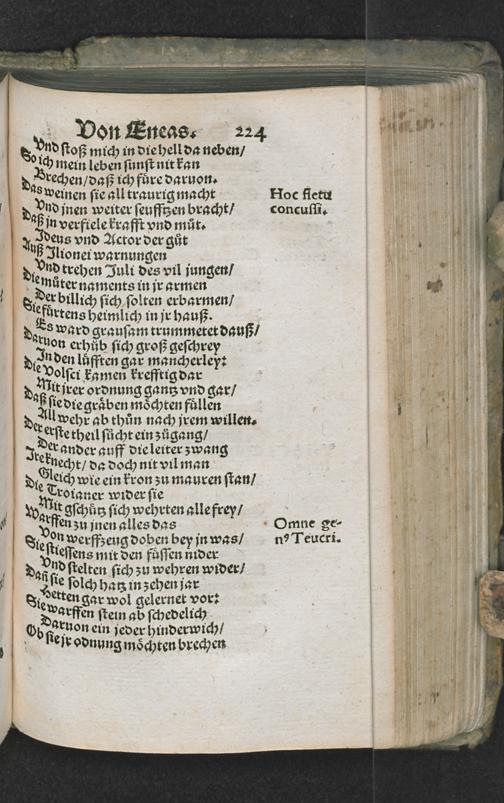 Von Eneas. 224
Vnd stoß mich in die hell da neben/
So ich mein leben sunst nit kan
Brechen/ daß ich füre daruon.
Das weinen sie all traurig macht
Vnd jnen weiter seufftzen bracht/
Daß jn verfiele krafft vnd můt.
Ideus vnd Actor der gůt
Auß Ilionei warnungen
Vnd trehen Juli des vil jungen/
Die můter naments in jr armen
Der billich sich solten erbarmen/
Sie fürtens heimlich in jr hauß.
Es ward grausam trummetet dauß/
Daruon erhůb sich groß geschrey
In den lüfften gar mancherley:
Die Volsci kamen krefftig dar
Mit jrer ordnung gantz vnd gar/
Daß sie die gräben möchten füllen
All wehr ab thůn nach jrem willen.
Der erste theil sůcht ein zůgang/
Der ander auff die leiter zwang
Ire knecht/ da doch nit vil man
Gleich wie ein kron zu mauren stan/
Die Troianer wider sie
Mit gschütz sich wehrten alle frey/
Warffen zu jnen alles das
Von werffzeug doben bey jn was/
Sie stiessens mit den füssen nider
Vnd stelten sich zu wehren wider/
Dañ sie solch hatz in zehen jar
Hetten gar wol gelernet vor:
Sie warffen stein ab schedelich
Daruon ein jeder hinderwich/
Ob sie jr odnung möchten brechen
Hoc fletu
concussi.
Omne ge-
nꝰ Teucri.